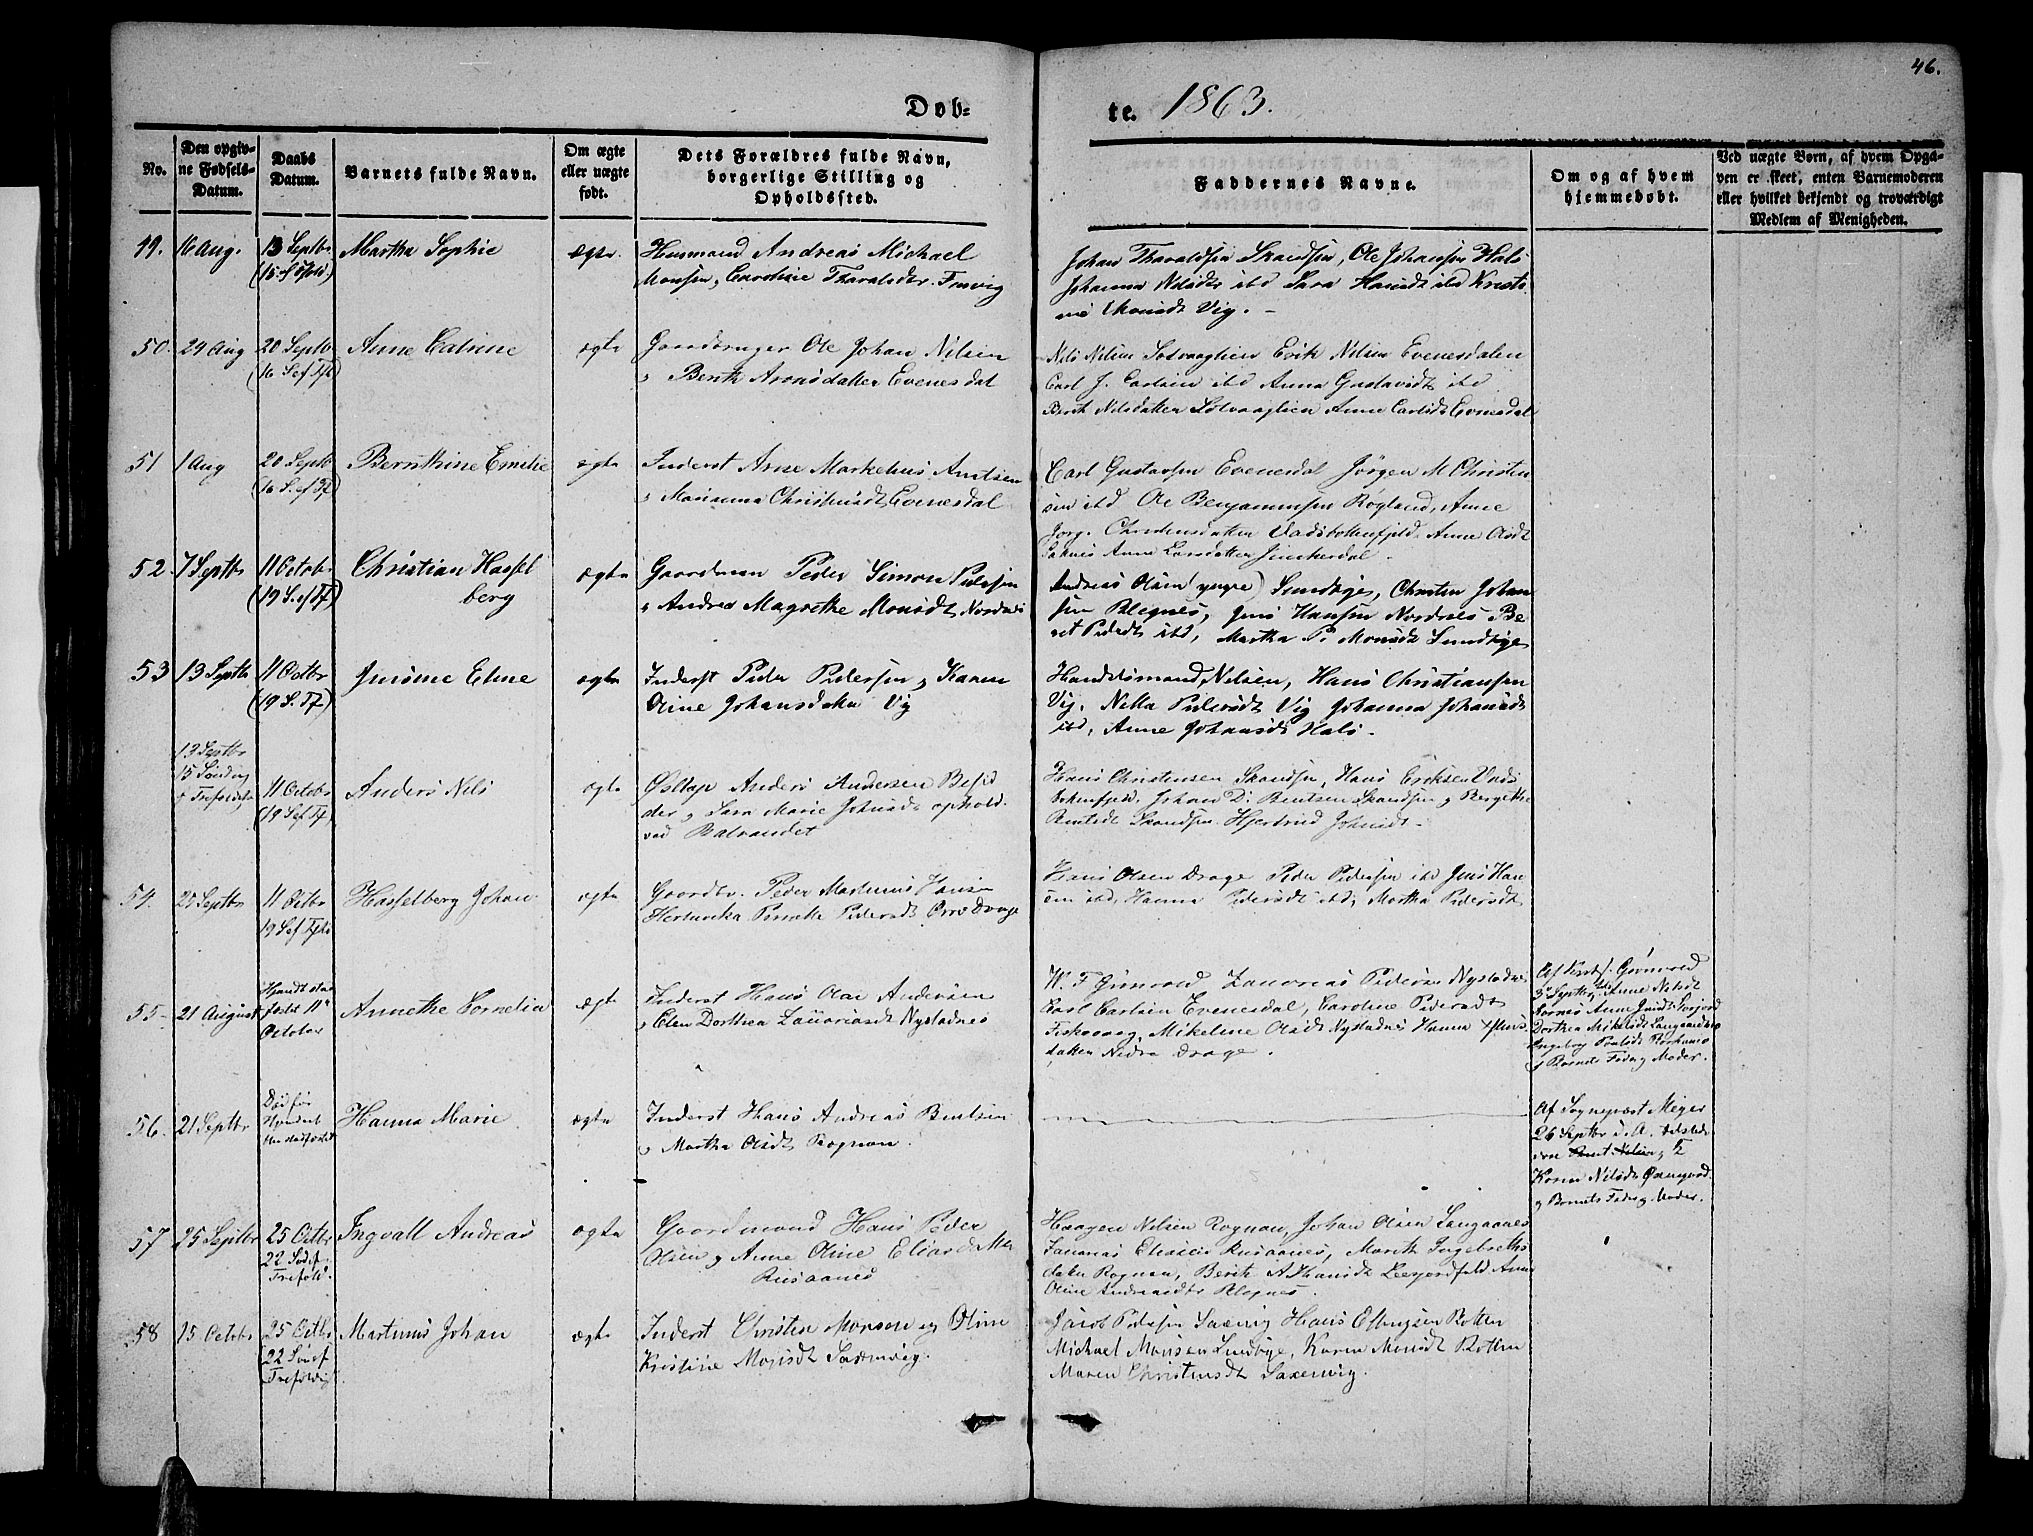 46.
Døb=
te. 1863.
No.
Den opgiv-
ne Fødsels-
Datum.
Daabs
Datum.
Barnets fulde Navn.
Om ægte
eller uægte
født.
Dets Forældres fulde Navn,
borgerlige Stilling og
Opholdssted.
Faddernes Navne.
Om og af hvem
hjemmedøbt.
Ved uægte Børn, af hvem Opga-
ven er skeet, enten Barnemoderen
eller hvilket bekjendt og troværdigt
Medlem af Menigheden.
49. 16 Aug. 13 Septbr Martha Sophie ægte. Husmand Andreas Michael
Monsen, Caroline Tharaldsdr.
Johan Tharaldsen Skandsen, Ole Johansen Hals
Johanna Nilsdtr ibd Sara Hansdt ibd Kristi-
ne Monsdt Vig.
50. 24 Aug 20 Septbr Anne Catrine ægte Gaardbruger Ole Johan Nilsen
(16 S. ef Tf) & Berith Aronsdatter Evenesdal
Nils Nilsen Solvaaglien Erik Nilsen Evenesdalen
Carl J. Carlsen ibd Anna Gustavsdt ibd
Berith Nilsdatter Solvaaglien Anne Carlsdt Evenesdal
51 1 Aug 20 Septbr Bernthine Emilie ægte Inderst Arne Markelius Arntsen
(16 S. ef Tf) & Marianna Christensdt Evenesdal
Carl Gustavsen Evenesdal Jørgen M Christen
sen ibd Ole Benjaminsen Røgland, Anne
Jørg. Christensdatter Vadsbottenfjeld Anne Olsdt
Saknes Anne Larsdatter Junkerdal.
52. 7 Septbr 11 Octobr Christian Hassel ægte Gaardman Peder Simon Pedersen
(19 S. ef Tf) berg & Andrea Magrethe Monsdt Nordnes
Andreas Olsen (yngre) Sundbye, Christen Johan
sen Blegnes, Jens Hansen Nordnes Be
ret Pedersdt ibd, Martha P. Monsdt Sundbye
53 13 Septbr 11 Octbr Jensine Eline ægte Inderst Peder Pedersen & Karen
(19 S. Tf) Oline Johansdatter Vig
Handelsmand Nilsen, Hans Christiansen
Vig, Nella Pedersdt Vig Johanna Johansdt
ibd, Anne Johansdt Hals.
13 Septbr
15 Søndag
11 Octobr Anders Nils ægte Østlap Anders Andersen
(19 S ef Tf) der & Sara Marie Johnsdt ophold.
ved Balvandet
Hans Christensen Skandsen, Hans Eriksen Vads
botnfjeld, Johan D. Bentsen Skandsen & Bergithe
Bentsdt Skandsen Hjertrud Johnsdt.
54. 20 Septbr 11 Octbr Hasselberg Johan ægte Gaardbr. Peder Martinus Hansen
19 S ef Tf Pernille Pedersdt Øvre Drage
Hans Olsen Drage Peder Pedersen ibd Jens Han
sen ibd, Hanna Pedersdt ibd, Martha Pedersdt
55. 21 August
fæstet 11te
October Annethe Cornelia ægte Inderst Hans Olai Andersen
& Elen Dorthea Zacariasdt Nystadnes
W. F Grønvold, Zacarias Pedersen Nystadnes
Carl Carlsen Evenesdal, Caroline Pedersdt
Fiskevaag, Mikeline Olsdt Nystadnes Hanna Jens-
datter Nedre Drage.
Af Grønvold
3 Septbr Anne Nilsdt
Dorthea Mikelsdt Langaasnes
Ingeborg Paulsdt
& Barnets Fader & Moder.
56. 21 Septbr Død før
Hanna Marie ægte Inderst Hans Andreas Bentsen
& Martha Olsdt Rognan.
Af Sognepræst Meyer
26 Septbr d. A.
Karen Nilsdt
& Barnets Fader & Moder.
57 25 Septbr 25 Octbr Ingvall Andreas ægte Gaardmand Hans Peder
22 Olsen & Anne Oline Eliasdatter
Trefold. Rusaanes
Haagen Nilsen Rognan, Johan Olsen Langaanes
Zacarias Eliasen Rusaanes, Marith Ingebrigts
datter Rognan, Berith A Hansdt Anne
Oline Andreasdtr Blegnes.
58 15 Octobr 25 Octbr Martinus Johan ægte Inderst Christen Monsen og Oline
(22 Kristine Monsdt Saxenvig
Jacob Pedersen Saxenvig Hans Ellingsen Botten
Michael Monsen Sundbye, Karen Monsdt Botten
Maren Christensdt Saxenvig.